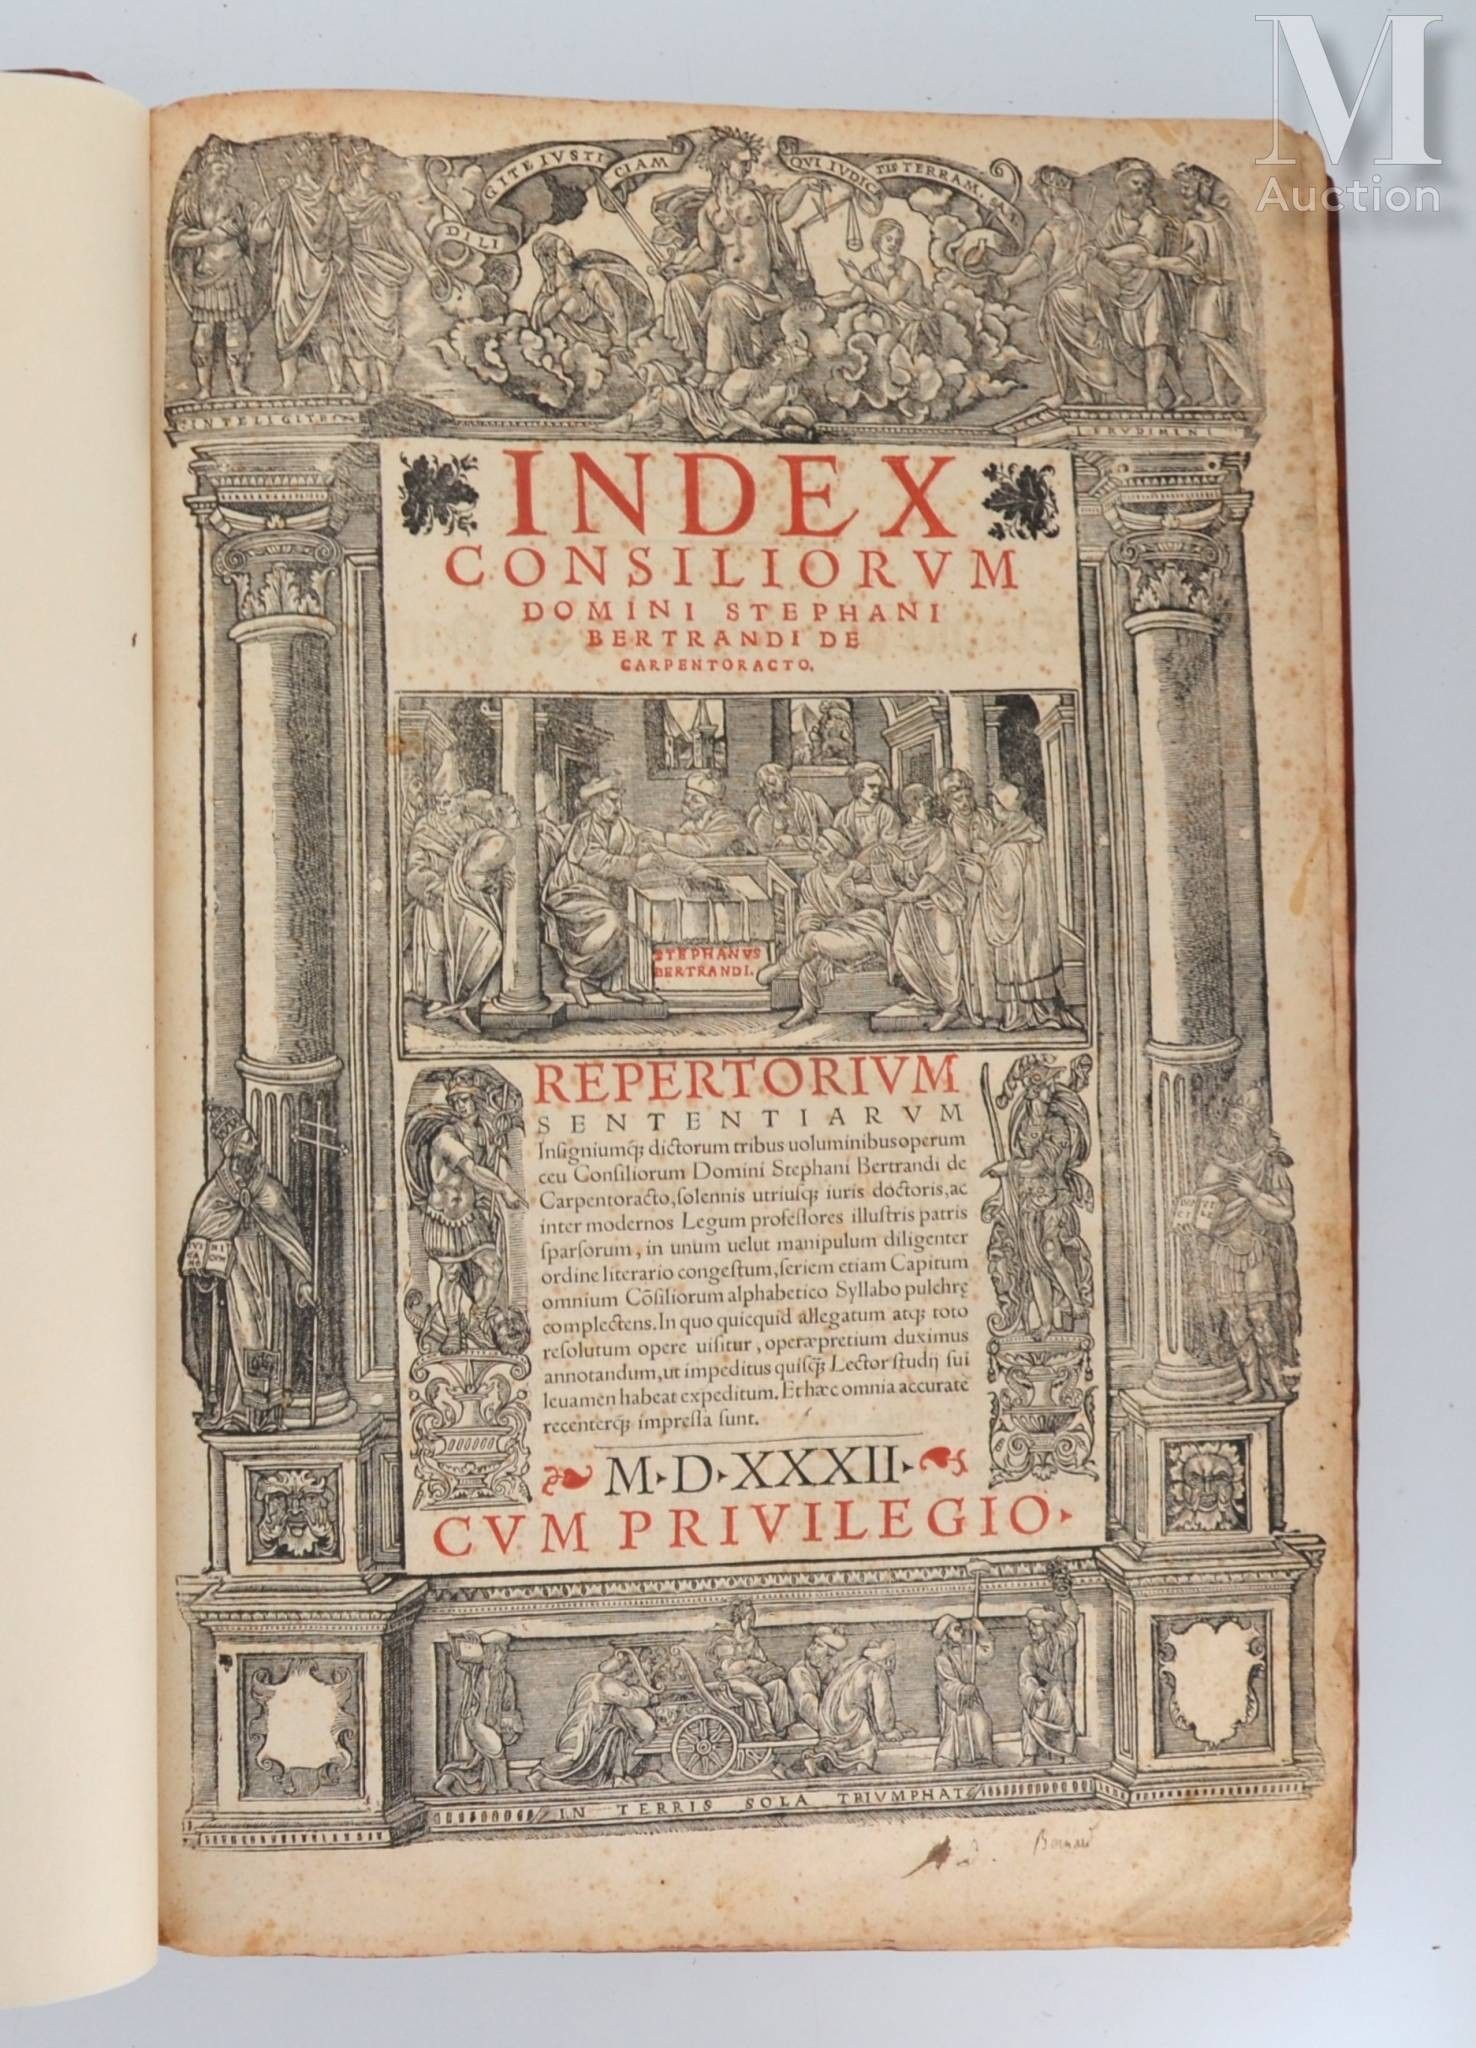 M
Auction
DILIGITE IVSTICIAM QVI IVDICATIS TERRAM.
INTELIGITE
ERVDIMINI
INDEX
CONSILIORVM
DOMINI STEPHANI
BERTRANDI DE
CARPENTORACTO.
STEPHANVS
BERTRANDI.
REPERTORIVM
SENTENTIARVM
Insigniumq; dictorum tribus uoluminibus operum
ceu Consiliorum Domini Stephani Bertrandi de
Carpentoracto, solennis utriusq; iuris doctoris, ac
inter modernos Legum professores illustris patris
sparsorum, in unum uelut manipulum diligenter
ordine literario congestum, seriem etiam Capitum
omnium Cõsiliorum alphabetico Syllabo pulchrę
complectens. In quo quicquid allegatum atq; toto
resolutum opere uisitur, operæpretium duximus
annotandum, ut impeditus quisq; Lector studij sui
leuamen habeat expeditum. Et hæc omnia accurate
recenterq; impressa sunt.
M·D·XXXII·
CVM PRIVILEGIO·
IN TERRIS SOLA TRIVMPHAT